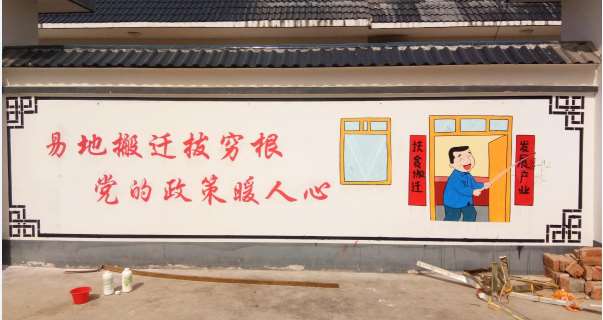 易地搬迁拔穷根
党的政策暖人心
扶贫搬迁
发展产业